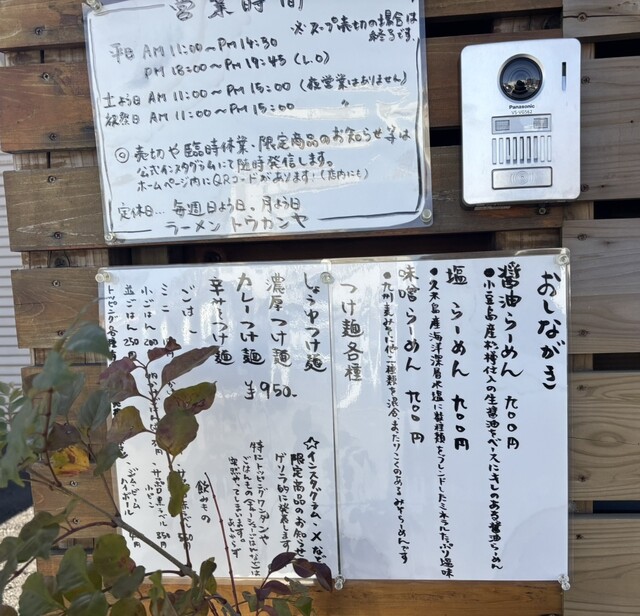 営業時間
※スープ売切の場合は
終了です。
平日 AM 11:00〜PM 14:30
PM 18:00〜PM 19:45 (L.O)
土よう日 AM 11:00〜PM 15:00 (夜営業はありません)
祝祭日 AM 11:00〜PM 15:00 〃
◎ 売切や臨時休業・限定商品のお知らせ等は
公式インスタグラムにて随時発信します。
ホームページ内にQRコードがあります!(店内にも)
定休日… 毎週日よう日、月よう日
ラーメン トウカンヤ
Panasonic
おしながき
醤油らーめん 九〇〇円
●小豆島産杉樽仕入の生醤油をベースにキレのある醤油らーめん
塩 らーめん 九〇〇円
●久米島産海洋深層水塩に数種類をブレンドしたミネラルたっぷり塩味
味噌らーめん 九〇〇円
●九州麦みそに他二種類を混合、まったりこくのあるみそらーめんです
つけ麺各種
しょうゆつけ麺
濃厚つけ麺
カレーつけ麺 ¥950-
辛みそつけ麺
☆インスタグラム・Xなど
限定商品のお知らせ
ゲリラ的に発表します
特にトッピングワンタンや
ごはん
ミニ
小ごはん 200
並ごはん 250円
トッピング各種
飲みもの
350円
ジムビーム
ハイボール